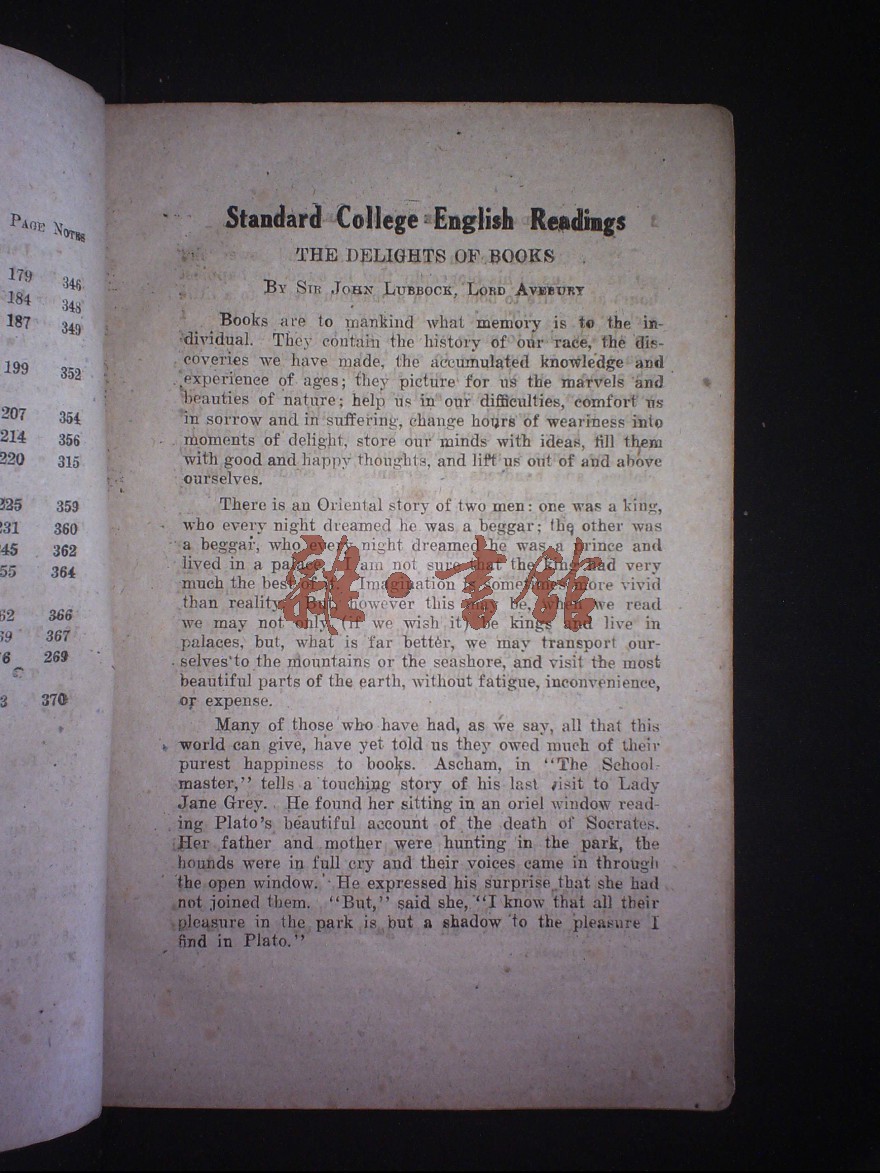 PAGE NOTES
179 346
184 348
187 349
199 352
207 354
214 356
220 315
225 359
231 360
45 362
55 364
62 366
69 367
6 269
3 370
Standard College English Readings
THE DELIGHTS OF BOOKS
BY SIR JOHN LUBBOCK, LORD AVEBURY
Books are to mankind what memory is to the in-
dividual. They contain the history of our race, the dis-
coveries we have made, the accumulated knowledge and
experience of ages; they picture for us the marvels and
beauties of nature; help us in our difficulties, comfort us
in sorrow and in suffering, change hours of weariness into
moments of delight, store our minds with ideas, fill them
with good and happy thoughts, and lift us out of and above
ourselves.
There is an Oriental story of two men: one was a king,
who every night dreamed he was a beggar; the other was
a beggar, who every night dreamed he was a prince and
lived in a palace. I am not sure that the king had very
much the best of it. Imagination is sometimes more vivid
than reality. But, however this may be, when we read
we may not only (if we wish it) be kings and live in
palaces, but, what is far better, we may transport our-
selves to the mountains or the seashore, and visit the most
beautiful parts of the earth, without fatigue, inconvenience,
or expense.
Many of those who have had, as we say, all that this
world can give, have yet told us they owed much of their
purest happiness to books. Ascham, in "The School-
master," tells a touching story of his last visit to Lady
Jane Grey. He found her sitting in an oriel window read-
ing Plato's beautiful account of the death of Socrates.
Her father and mother were hunting in the park, the
hounds were in full cry and their voices came in through
the open window. He expressed his surprise that she had
not joined them. "But," said she, "I know that all their
pleasure in the park is but a shadow to the pleasure I
find in Plato."
雜·書館